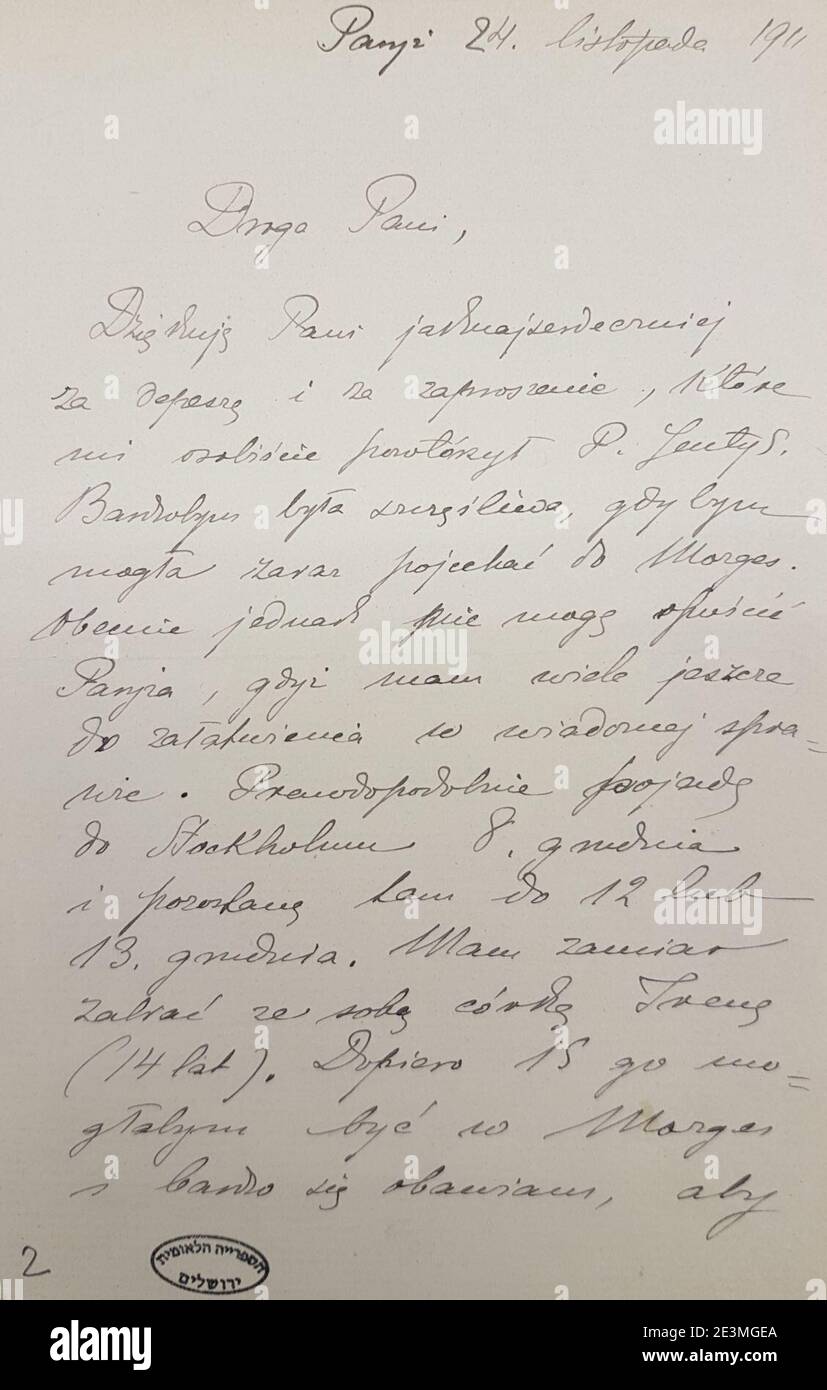 Paryż 24. listopada 1911
Droga Pani,
Dziękuję Pani jaknajserdeczniej
za depeszę i za zaproszenie, które
mi osobiście powtórzył P.
Bardzobym była szczęśliwa, gdybym
mogła zaraz pojechać do Morges.
Obecnie jednak nie mogę opuścić
Paryża, gdyż mam wiele jeszcze
do załatwienia w wiadomej spra=
wie. Prawdopodobnie pojadę
do Stockholmu 8. grudnia
i pozostanę tam do 12 lub
13. grudnia. Mam zamiar
zabrać ze sobą córkę Irenę
(14 lat). Dopiero 15 go mo=
głabym być w Morges
i bardzo się obawiam, aby
2
הספרייה הלאומית
ירושלים
alamy
alamy
Image ID: 2E3MGEA
www.alamy.com